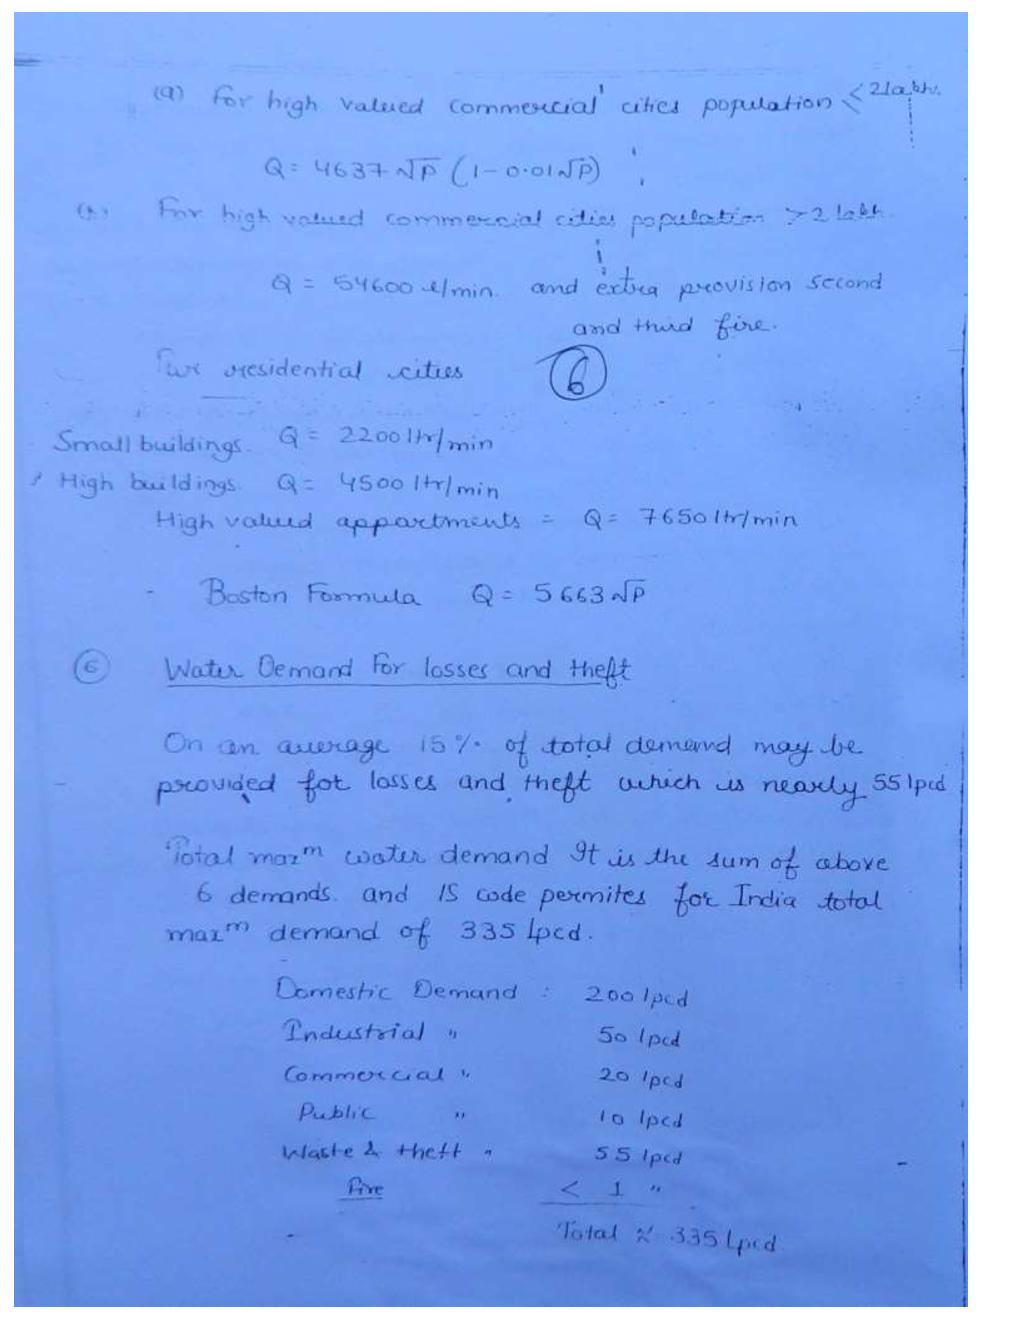 (a) For high valued commercial cities population < 2 lakh.
Q = 4637 √P (1 - 0.01√P)
For high valued commercial cities population > 2 lakh.
Q = 54600 l/min. and extra provision second
and third fire.
For residential cities
6
Small buildings. Q = 2200 ltr/min
High buildings. Q = 4500 ltr/min
High valued appartments = Q = 7650 ltr/min
- Boston Formula Q = 5663 √P
6 Water Demand For losses and theft
On an average 15 % of total demand may be
provided fot losses and theft which is nearly 55 lpcd
Total maxᵐ water demand It is the sum of above
6 demands. and IS code permites for India total
maxᵐ demand of 335 lpcd.
Domestic Demand : 200 lpcd
Industrial " 50 lpcd
Commercial " 20 lpcd
Public " 10 lpcd
Waste & theft " 55 lpcd
Fire < 1 "
Total ≈ 335 lpcd